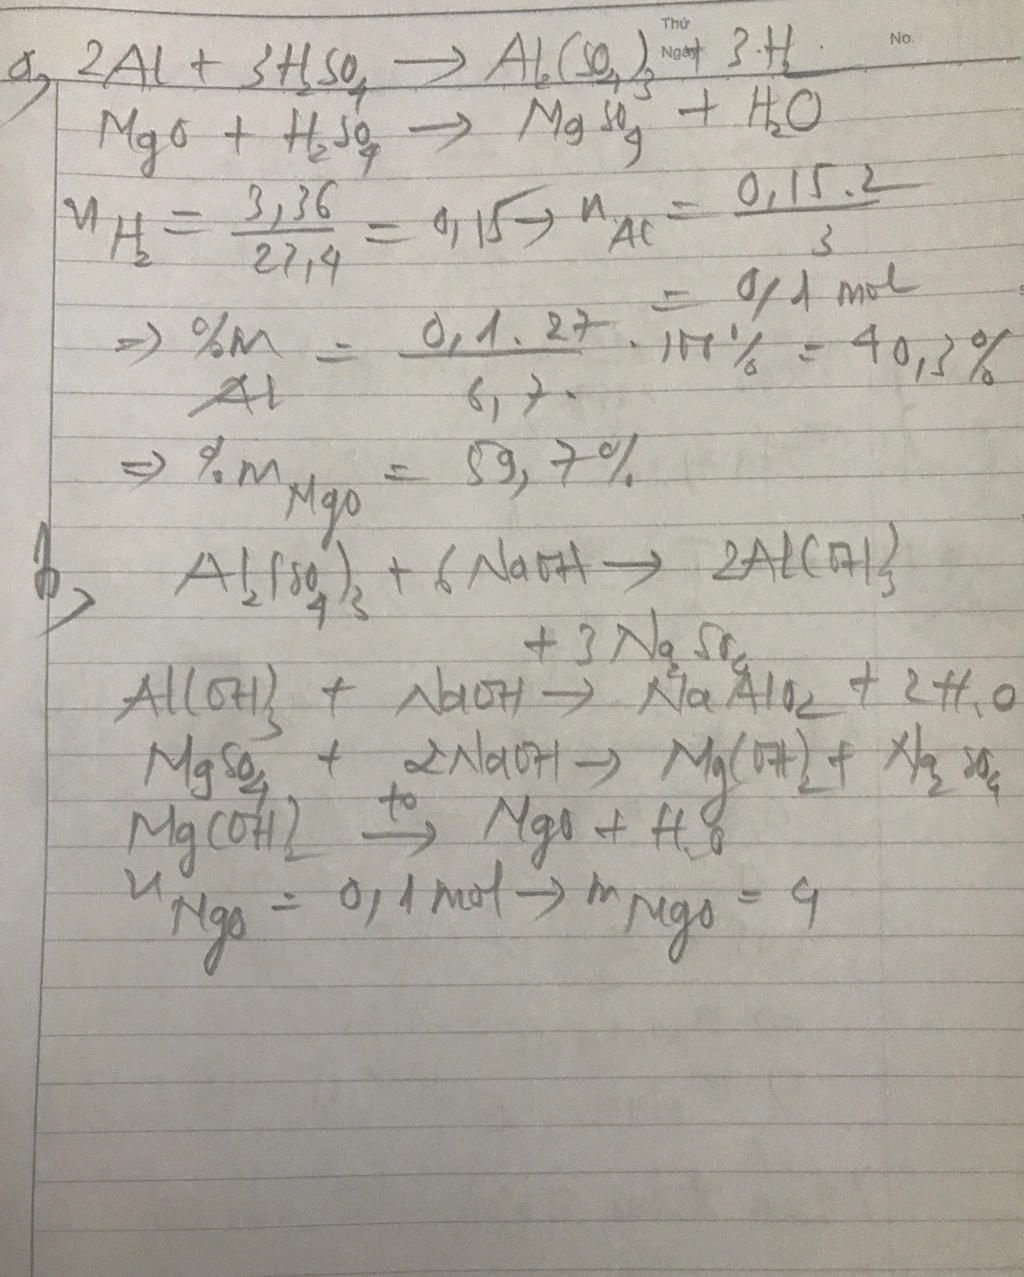 Thứ
Ngày No.
a, 2Al + 3H₂SO₄ → Al₂(SO₄)₃ + 3H₂
MgO + H₂SO₄ → MgSO₄ + H₂O
n H₂ = 3,36 / 22,4 = 0,15 → n Al = 0,15.2 / 3
= 0,1 mol
⇒ %m Al = 0,1.27 / 6,7 . 100% = 40,3%
⇒ %m MgO = 59,7%
b, Al₂(SO₄)₃ + 6NaOH → 2Al(OH)₃
+ 3Na₂SO₄
Al(OH)₃ + NaOH → NaAlO₂ + 2H₂O
MgSO₄ + 2NaOH → Mg(OH)₂ + Na₂SO₄
Mg(OH)₂ →(t°) MgO + H₂O
n MgO = 0,1 mol → m MgO = 4